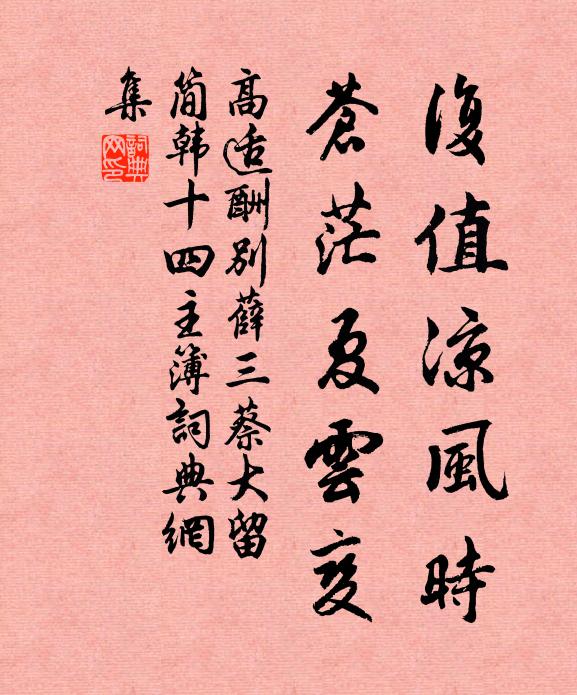 復值涼風時
蒼茫夏雲變
高适酬别薛三蔡大留
简韩十四主簿詞典網
集
詞典
网印